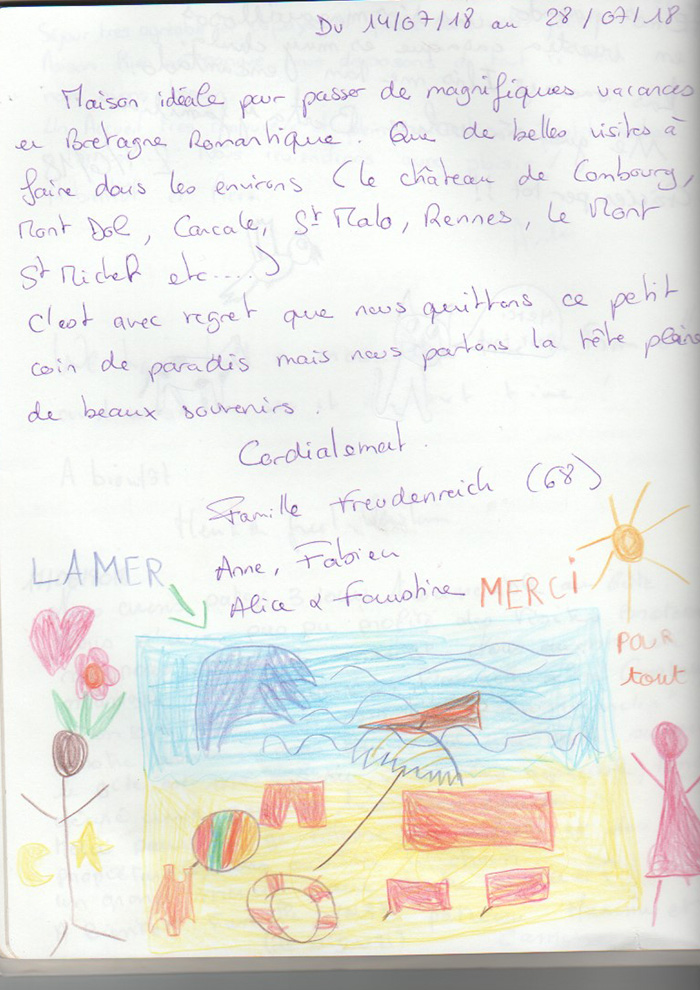 Du 14/07/18 au 28/07/18
Maison idéale pour passer de magnifiques vacances
en Bretagne Romantique. Que de belles visites à
faire dans les environs (le château de Combourg,
Mont Dol, Cancale, St Malo, Rennes, Le Mont
St Michel etc.....)
C'est avec regret que nous quittons ce petit
coin de paradis mais nous partons la tête pleine
de beaux souvenirs.
Cordialement.
Famille Freudenreich (68)
Anne, Fabien
Alice & Faustine
LA MER
MERCi
POUR
tout